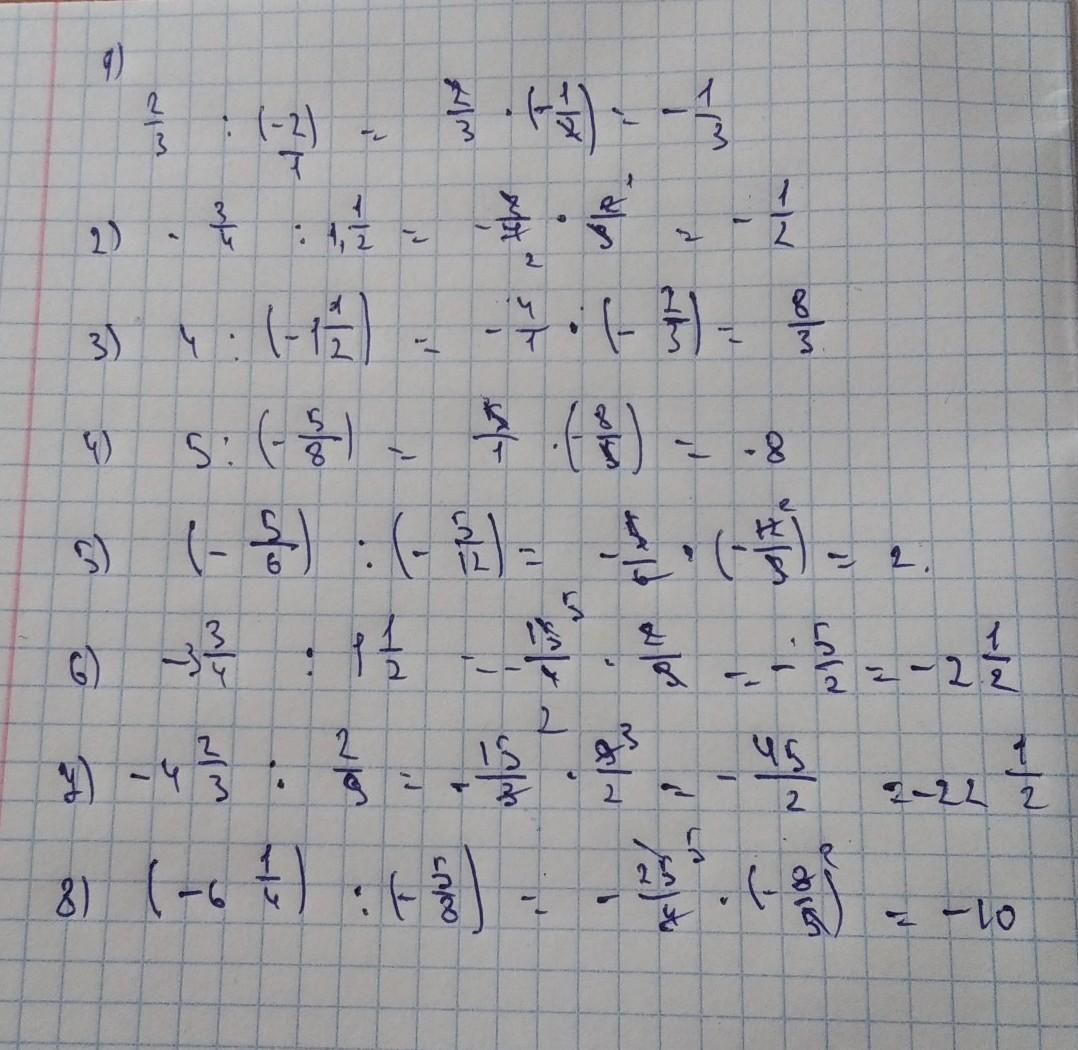 1)
2/3 : (-2)/1 = 2/3 · (-1/2) = -1/3
2) - 3/4 : 1,1/2 = -3/4 2 · 2/3 1 = -1/2
3) 4 : (-1 1/2) = -4/1 · (-2/3) = 8/3
4) 5 : (-5/8) = 5/1 · (-8/5) = -8
5) (-5/6) : (-5/12) = -5/6 · (-12/5) 2 = 2.
6) -3 3/4 : 1 1/2 = -15/4 5 2 · 2/3 = -5/2 = -2 1/2
7) -4 2/3 : 2/9 = -15/3 · 9/2 3 = -45/2 = -22 1/2
8) (-6 1/4) : (-5/8) = -25/4 5 · (-8/5) 2 = -10